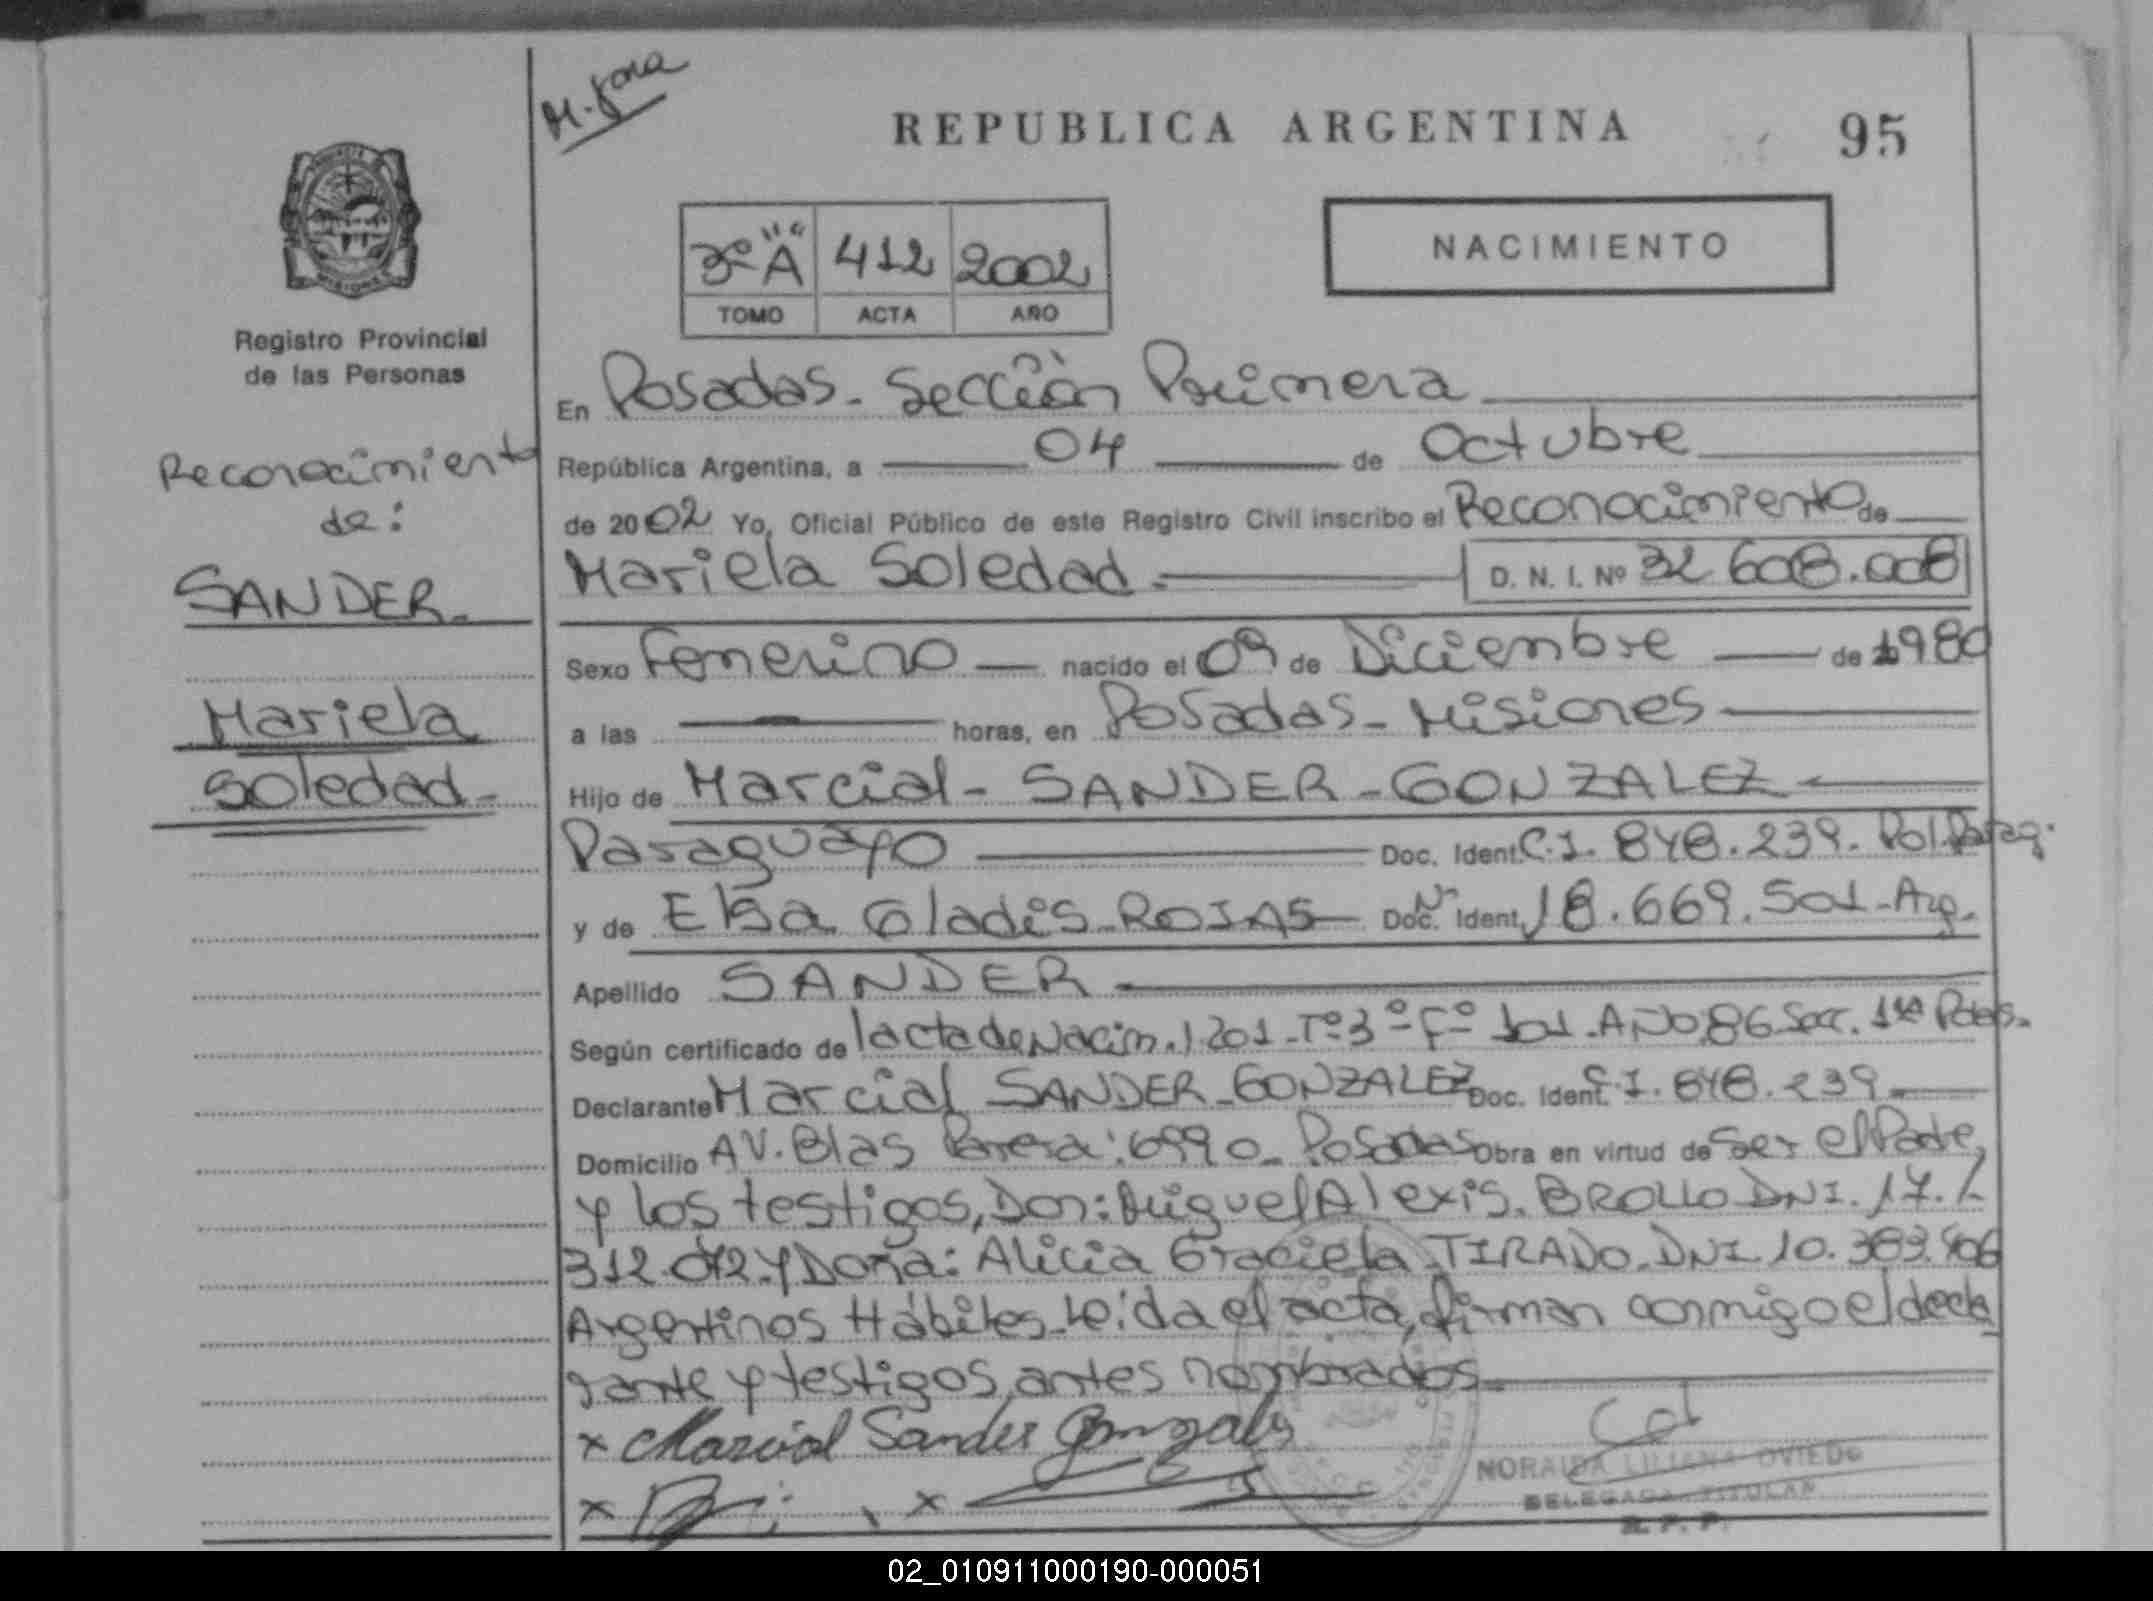 M. Jona
REPUBLICA ARGENTINA
95
3º "A" 412 2002
TOMO ACTA AÑO
NACIMIENTO
Registro Provincial
de las Personas
Reconocimiento
de:
SANDER.
Mariela
Soledad-
En Posadas. Sección Primera
República Argentina, a 04 de Octubre
de 2002 Yo, Oficial Público de este Registro Civil inscribo el Reconocimiento de
Mariela Soledad.- D. N. I. Nº 32 608.008
Sexo Femenino nacido el 09 de Diciembre de 1980
a las horas, en Posadas - Misiones
Hijo de Marcial - SANDER - GONZALEZ
Paraguayo Doc. Ident. C.I. 848.239. Pol. Parag.
y de Elsa Gladis - ROJAS Doc. Ident. Nº 18.669.501 - Arg.
Apellido SANDER
Según certificado de 1 acta de Nacim. 1201 - Tº 3º - Fº 101. AÑO 86 Secc. 1ra Pdas.
Declarante Marcial SANDER - GONZALEZ Doc. Ident. C.I. 848.239
Domicilio AV. Blas Parera: 6990 - Posadas Obra en virtud de Ser el Padre,
y los testigos, Don: Miguel Alexis. BROLLO DNI. 17./
312 y Doña: Alicia Graciela TIRADO. DNI 10.383.906
Argentinos Hábiles. Leída el acta, firman conmigo el decla
rante y testigos, antes nombrados.
x Marcial Sander Gonzalez
x x
NORAIDA LILIANA OVIEDO
DELEGADA TITULAR
R. P. P.
02_010911000190-000051